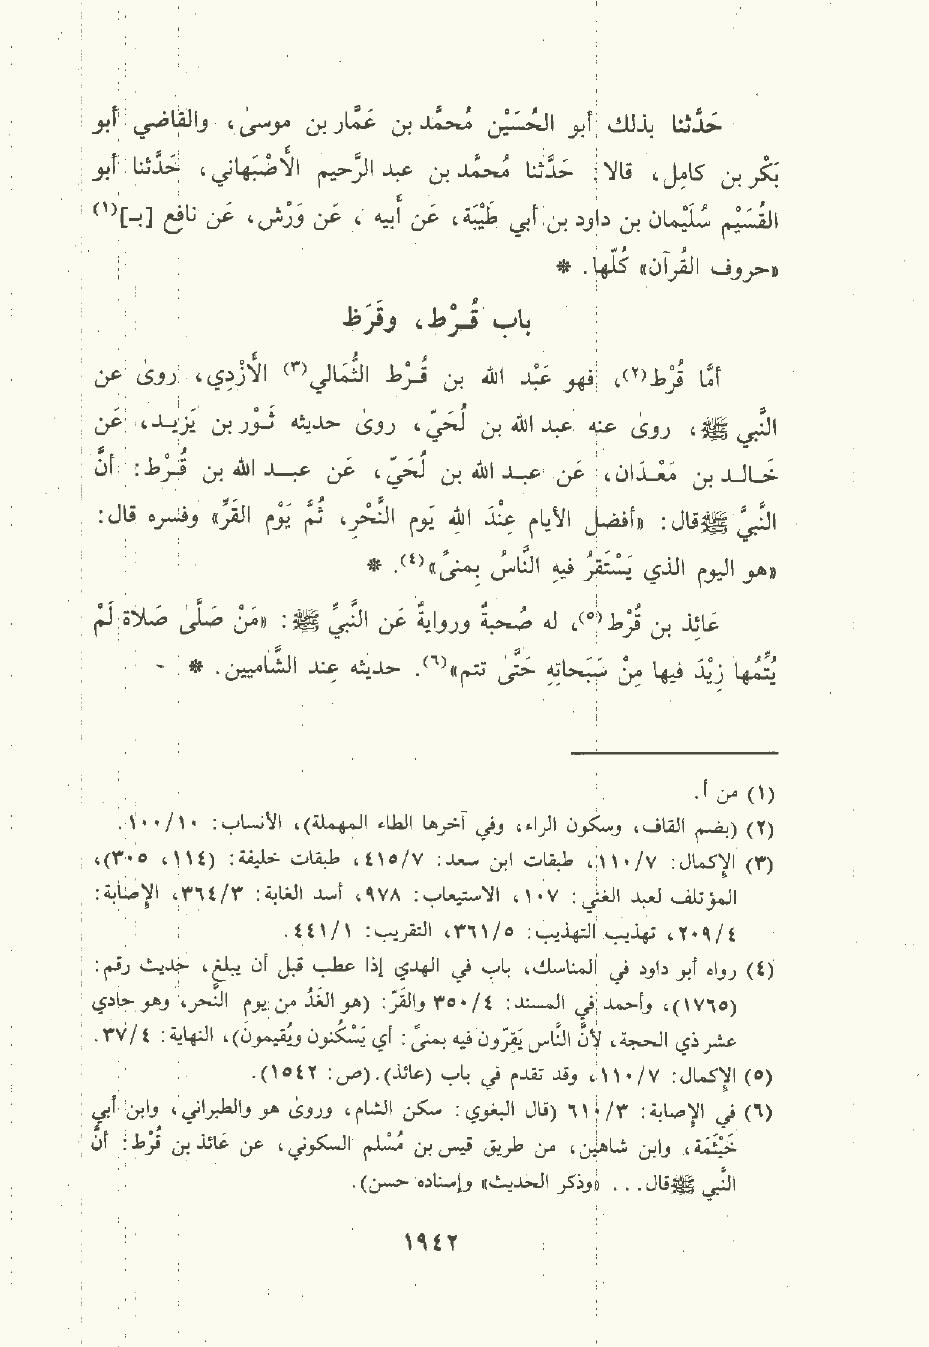 حَدَّثنا بذلك أبو الحُسَيْن مُحمَّد بن عمَّار بن موسىٰ، والقاضي أبو
بَكْر بن كامِل، قالا: حَدَّثنا مُحمَّد بن عبد الرَّحيم الأَصْبَهاني، حَدَّثنا أبو
القُسَيْم سُلَيْمان بن داود بن أبي طَيْبَة، عَن أبيه، عَن وَرْش، عَن نافِع [بـ](١)
«حروف القُرآن» كُلّها. *
باب قُرْط، وقَرَظ
أمَّا قُرْط(٢)، فهو عَبْد الله بن قُرْط الثُّمالي(٣) الأَزْدِي، روىٰ عن
النَّبي ﷺ، روىٰ عنه عبد الله بن لُحَيّ، روىٰ حديثه ثَوْر بن يَزيد، عَن
خَالد بن مَعْدَان، عَن عبد الله بن لُحَيّ، عَن عبد الله بن قُرْط: أنَّ
النَّبيَّ ﷺ قال: «أفضل الأيام عِنْدَ اللهِ يَوم النَّحْرِ، ثُمَّ يَوْم القَرِّ» وفسره قال:
«هو اليوم الذي يَسْتَقِرُ فيهِ النَّاسُ بِمنىً»(٤). *
عَائِذ بن قُرْط(٥)، له صُحبةٌ وروايةٌ عَن النَّبيِّ ﷺ: «مَنْ صَلَّىٰ صَلاة لَمْ
يُتِّمُها زِيْدَ فيها مِنْ سَبَحاتِهِ حَتَّىٰ تتم»(٦). حديثه عِند الشَّاميين. *
(١) من أ.
(٢) (بضم القاف، وسكون الراء، وفي آخرها الطاء المهملة)، الأنساب: ١٠/١٠٠.
(٣) الإكمال: ٧/١١٠، طبقات ابن سعد: ٧/٤١٥، طبقات خليفة: (١١٤، ٣٠٥)،
المؤتلف لعبد الغني: ١٠٧، الاستيعاب: ٩٧٨، أسد الغابة: ٣/٣٦٤، الإصَابة:
٤/٢٠٩، تهذيب التهذيب: ٥/٣٦١، التقريب: ١/٤٤١.
(٤) رواه أبو داود في المناسك، باب في الهدي إذا عطب قبل أن يبلغ، حديث رقم:
(١٧٦٥)، وأحمد في المسند: ٤/٣٥٠ والقَرّ: (هو الغَدُ من يوم النَّحر، وهو حادي
عشر ذي الحجة، لأنَّ النَّاس يَقِرّون فيه بمنىً: أي يَسْكُنون ويُقيمون)، النهاية: ٤/٣٧.
(٥) الإكمال: ٧/١١٠، وقد تقدم في باب (عائذ).(ص: ١٥٤٢).
(٦) في الإصَابة: ٣/٦١٠ (قال البغوي: سكن الشام، وروىٰ هو والطبراني، وابن أبي
خَيْثَمَة، وابن شاهين، من طريق قيس بن مُسْلم السكوني، عن عَائذ بن قُرْط: أنَّ
النَّبي ﷺ قال... «وذكر الحديث» وإسناده حسن).
١٩٤٢